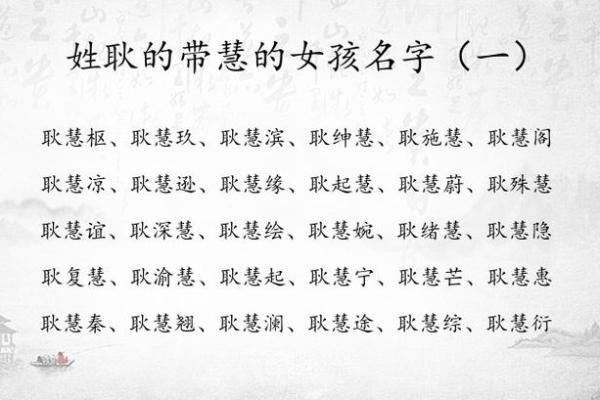 姓耿的带慧的女孩名字（一）
耿慧枢、耿慧玖、耿慧滨、耿绅慧、耿施慧、耿慧阁
耿慧凉、耿慧逊、耿慧缘、耿起慧、耿慧蔚、耿殊慧
耿慧谊、耿深慧、耿慧绘、耿慧婉、耿绪慧、耿慧隐
耿复慧、耿渝慧、耿慧起、耿慧宁、耿慧芒、耿慧惠
耿慧秦、耿慧翘、耿慧澜、耿慧途、耿慧综、耿慧衍